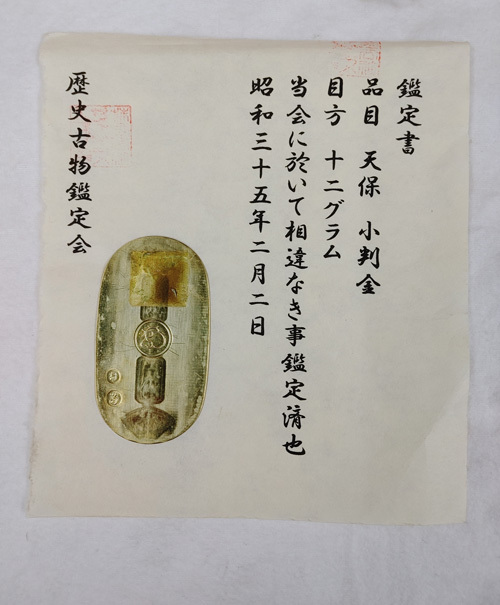 鑑定書
品目 天保 小判金
目方 十二グラム
当会に於いて相違なき事鑑定済也
昭和三十五年二月二日
歴史古物鑑定会